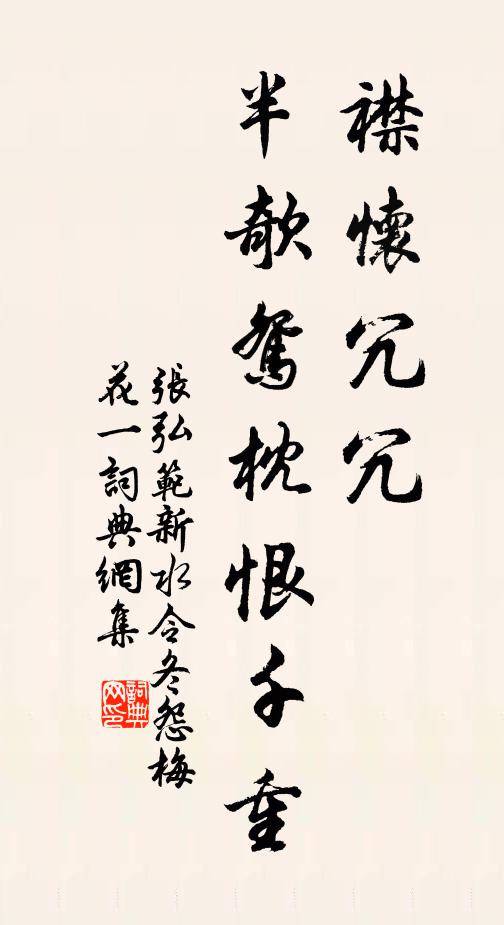 襟懷冗冗
半欹鴛枕恨千重
張弘範新水令冬怨梅
花一詞典網集
詞典网印